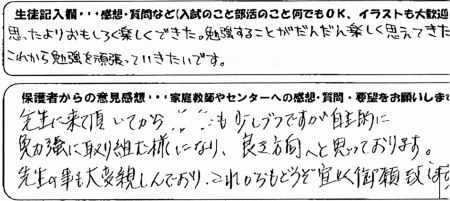 生徒記入欄・・・感想・質問など(入試のこと部活のこと何でもOK、イラストも大歓迎
思ったよりおもしろく楽しくできた。勉強することがだんだん楽しく思えてきた
これから勉強を頑張っていきたいです。
保護者からの意見感想・・・家庭教師やセンターへの感想・質問・要望をお願いします
先生に来て頂いてから も少しずつですが自主的に
勉強に取り組む様になり、良き方向へと思っております。
先生の事も大変親しんでおり、これからもどうぞ宜しく御願致します